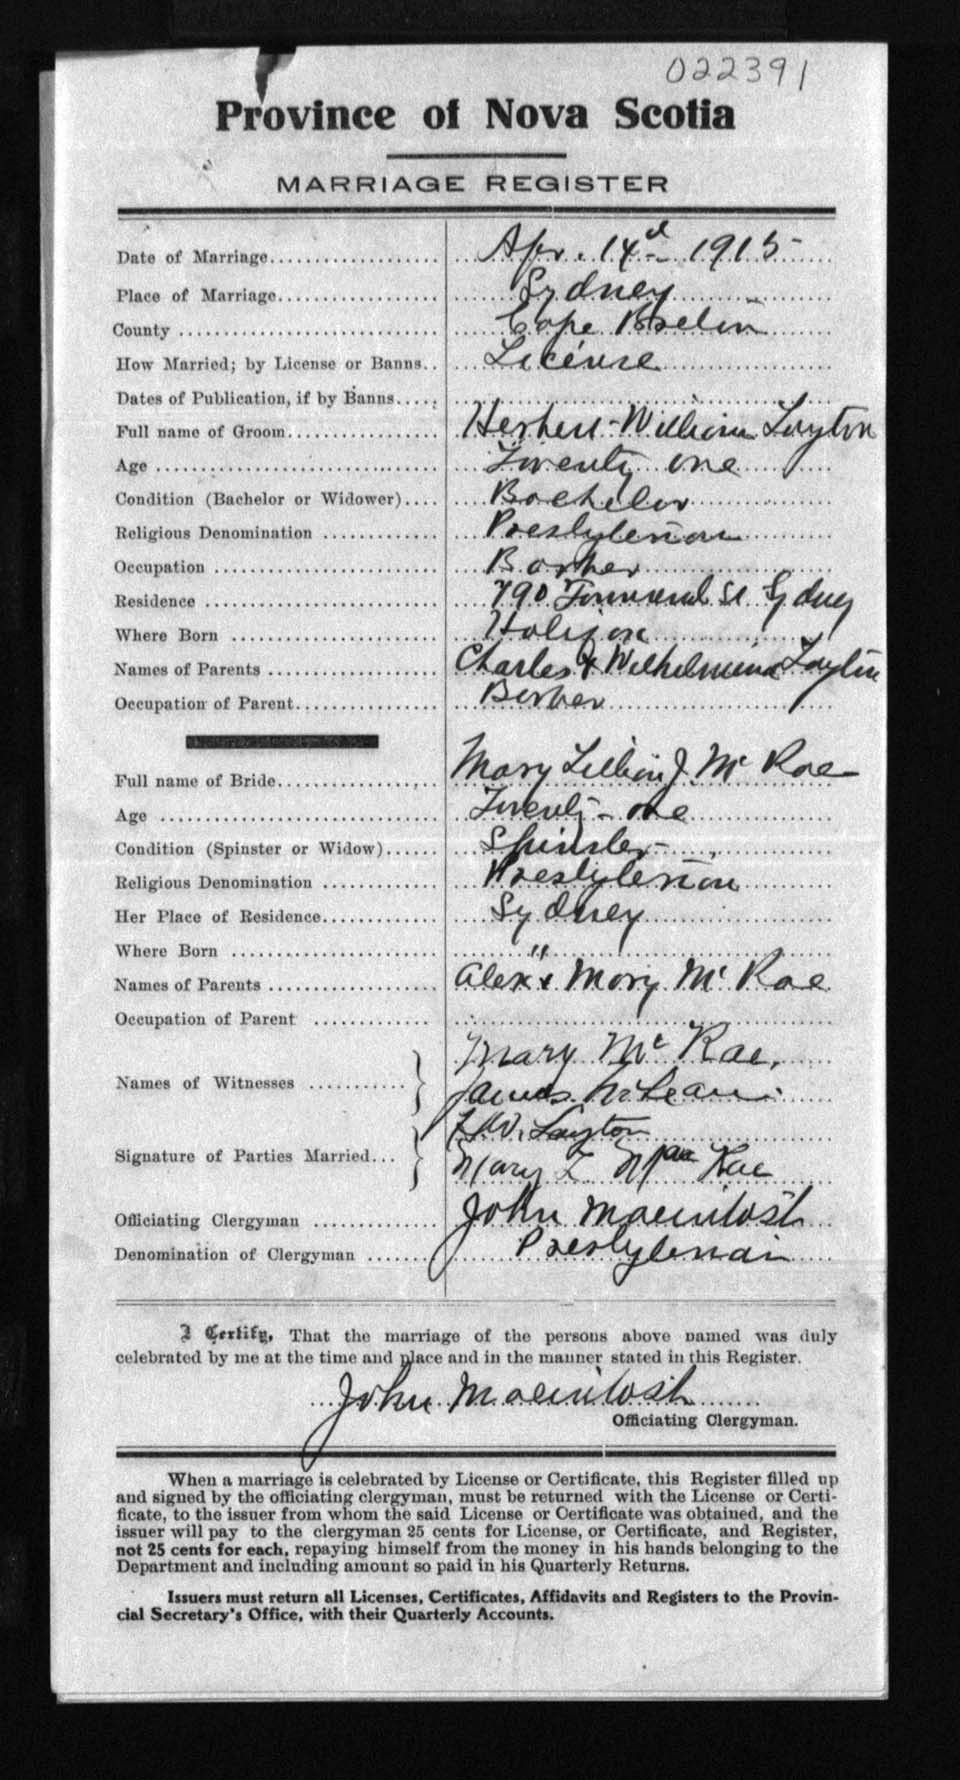 022391
Province of Nova Scotia
MARRIAGE REGISTER
Date of Marriage.................... Apr. 14th 1915
Place of Marriage................... Sydney
County .............................. Cape Breton
How Married; by License or Banns.. License
Dates of Publication, if by Banns.....
Full name of Groom................. Herbert William Layton
Age ................................. Twenty one
Condition (Bachelor or Widower).... Bachelor
Religious Denomination ............. Presbyterian
Occupation .......................... Barber
Residence ........................... 790 Townsend St Sydney
Where Born ........................ Halifax
Names of Parents ................... Charles & Wilhelmina Layton
Occupation of Parent................ Barber
Full name of Bride.................. Mary Lillian J. Mc Rae
Age ................................. Twenty-one
Condition (Spinster or Widow)...... Spinster
Religious Denomination ............. Presbyterian
Her Place of Residence............. Sydney
Where Born ........................ "
Names of Parents ................... Alex & Mary Mc Rae
Occupation of Parent .............
Names of Witnesses ........... Mary Mc Rae.
James McLean
Signature of Parties Married... H.W. Layton
Mary L. Mac Rae
Officiating Clergyman .............. John Macintosh
Denomination of Clergyman ....... Presbyterian
I Certify, That the marriage of the persons above named was duly
celebrated by me at the time and place and in the manner stated in this Register.
John Macintosh
Officiating Clergyman.
When a marriage is celebrated by License or Certificate, this Register filled up
and signed by the officiating clergyman, must be returned with the License or Certi-
ficate, to the issuer from whom the said License or Certificate was obtained, and the
issuer will pay to the clergyman 25 cents for License, or Certificate, and Register,
not 25 cents for each, repaying himself from the money in his hands belonging to the
Department and including amount so paid in his Quarterly Returns.
Issuers must return all Licenses, Certificates, Affidavits and Registers to the Provin-
cial Secretary's Office, with their Quarterly Accounts.